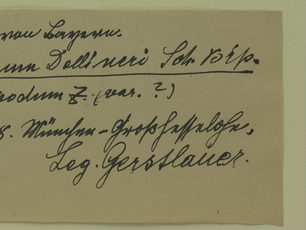 von Bayern.
um Dollineri Sch. Bip.
odum Z. (var. ?)
b. München - Großhesselohe,
Leg. Gerstlauer.